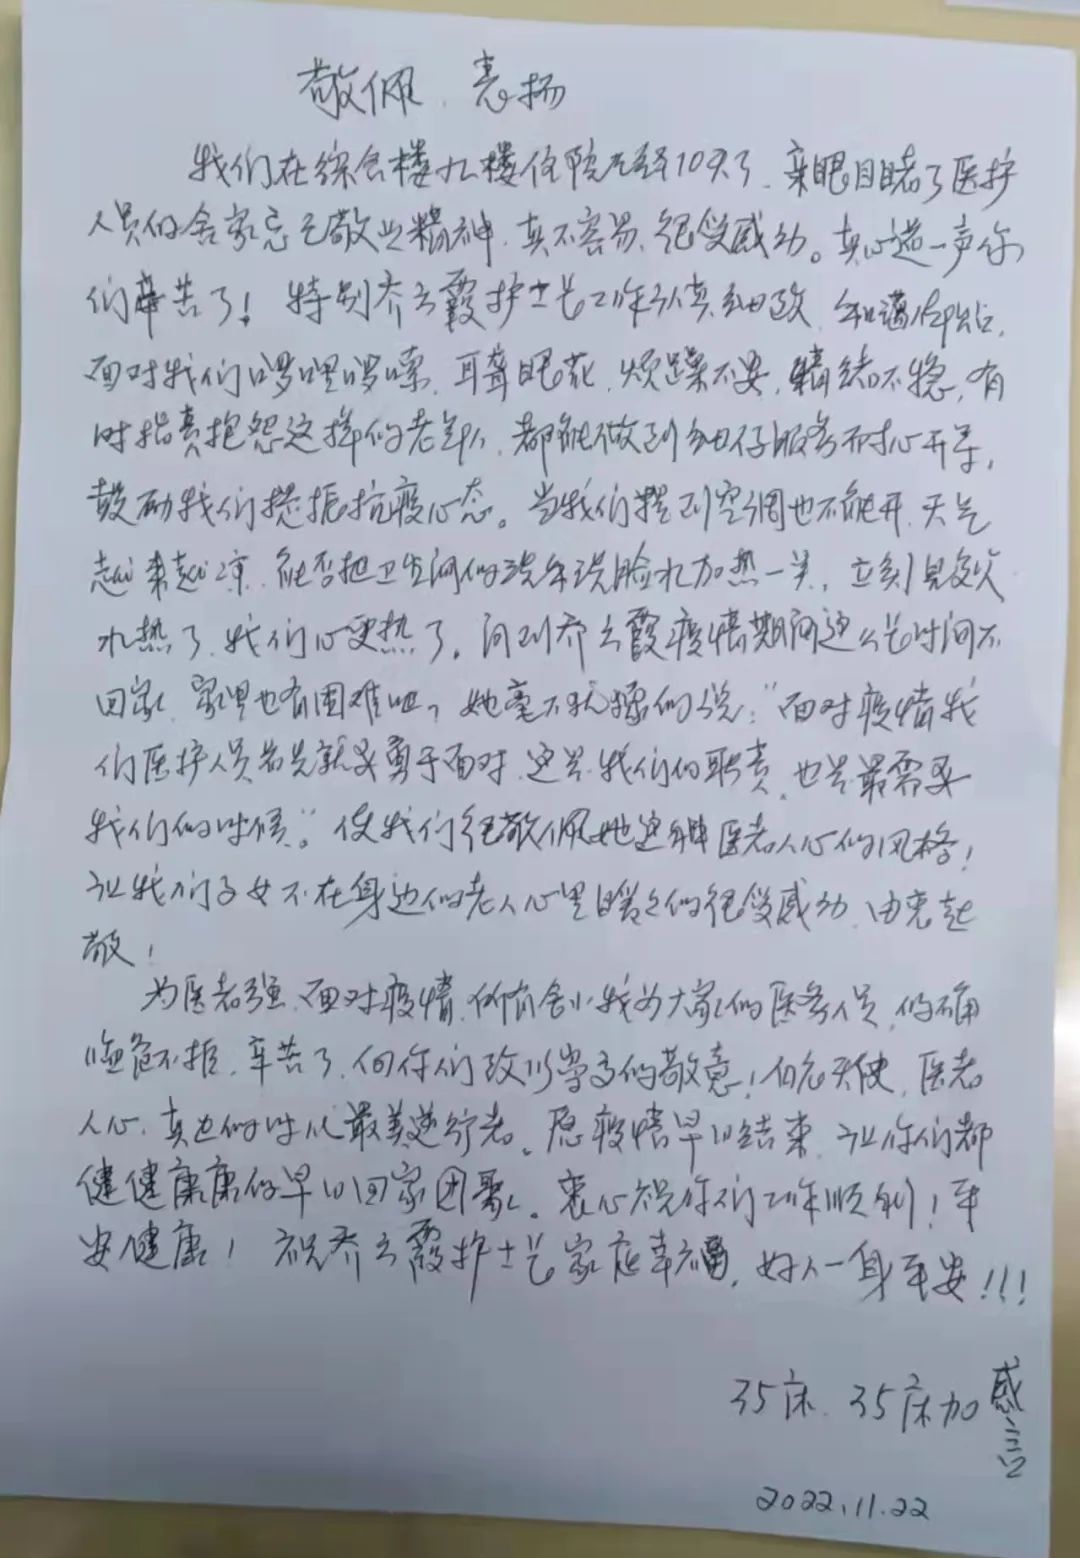 敬佩、表扬
我们在综合楼九楼住院已经10天了、亲眼目睹了医护
人员的舍家忘己敬业精神、真不容易、很受感动。真心道一声你
们辛苦了！特别乔云霞护士长工作认真细致、和蔼
面对我们啰哩啰嗦、耳聋眼花、烦躁不安、情绪不稳、有
时指责抱怨这样的老年人、都能做到细仔服务耐心开导，
鼓励我们提振抗疫心态。当我们提到空调也不能开、天气
越来越凉、能否把卫生间的洗手洗脸水加热一点，立刻见效
水热了、我们心更热了。问到乔云霞疫情期间这么长时间不
回家、家里也有困难吧，她毫不犹豫的说：“面对疫情我
们医护人员首先就要勇于面对、这是我们的职责、也是最需要
我们的时候。”使我们很敬佩她这种医者人心的风格！
让我们子女不在身边的老人心里暖之的很受感动、由衷起
敬！
为医者强、面对疫情、所有舍小我为大家的医务人员、的确
临危不拒、辛苦了、向你们致以崇高的敬意！白衣天使、医者
人心、真也的时代最美逆行者。愿疫情早日结束、让你们都
健健康康的早日回家团聚。衷心祝你们工作顺利！平
安健康！祝乔云霞护士长家庭幸福，好人一身平安！！！
35床、35床加 感言
2022.11.22